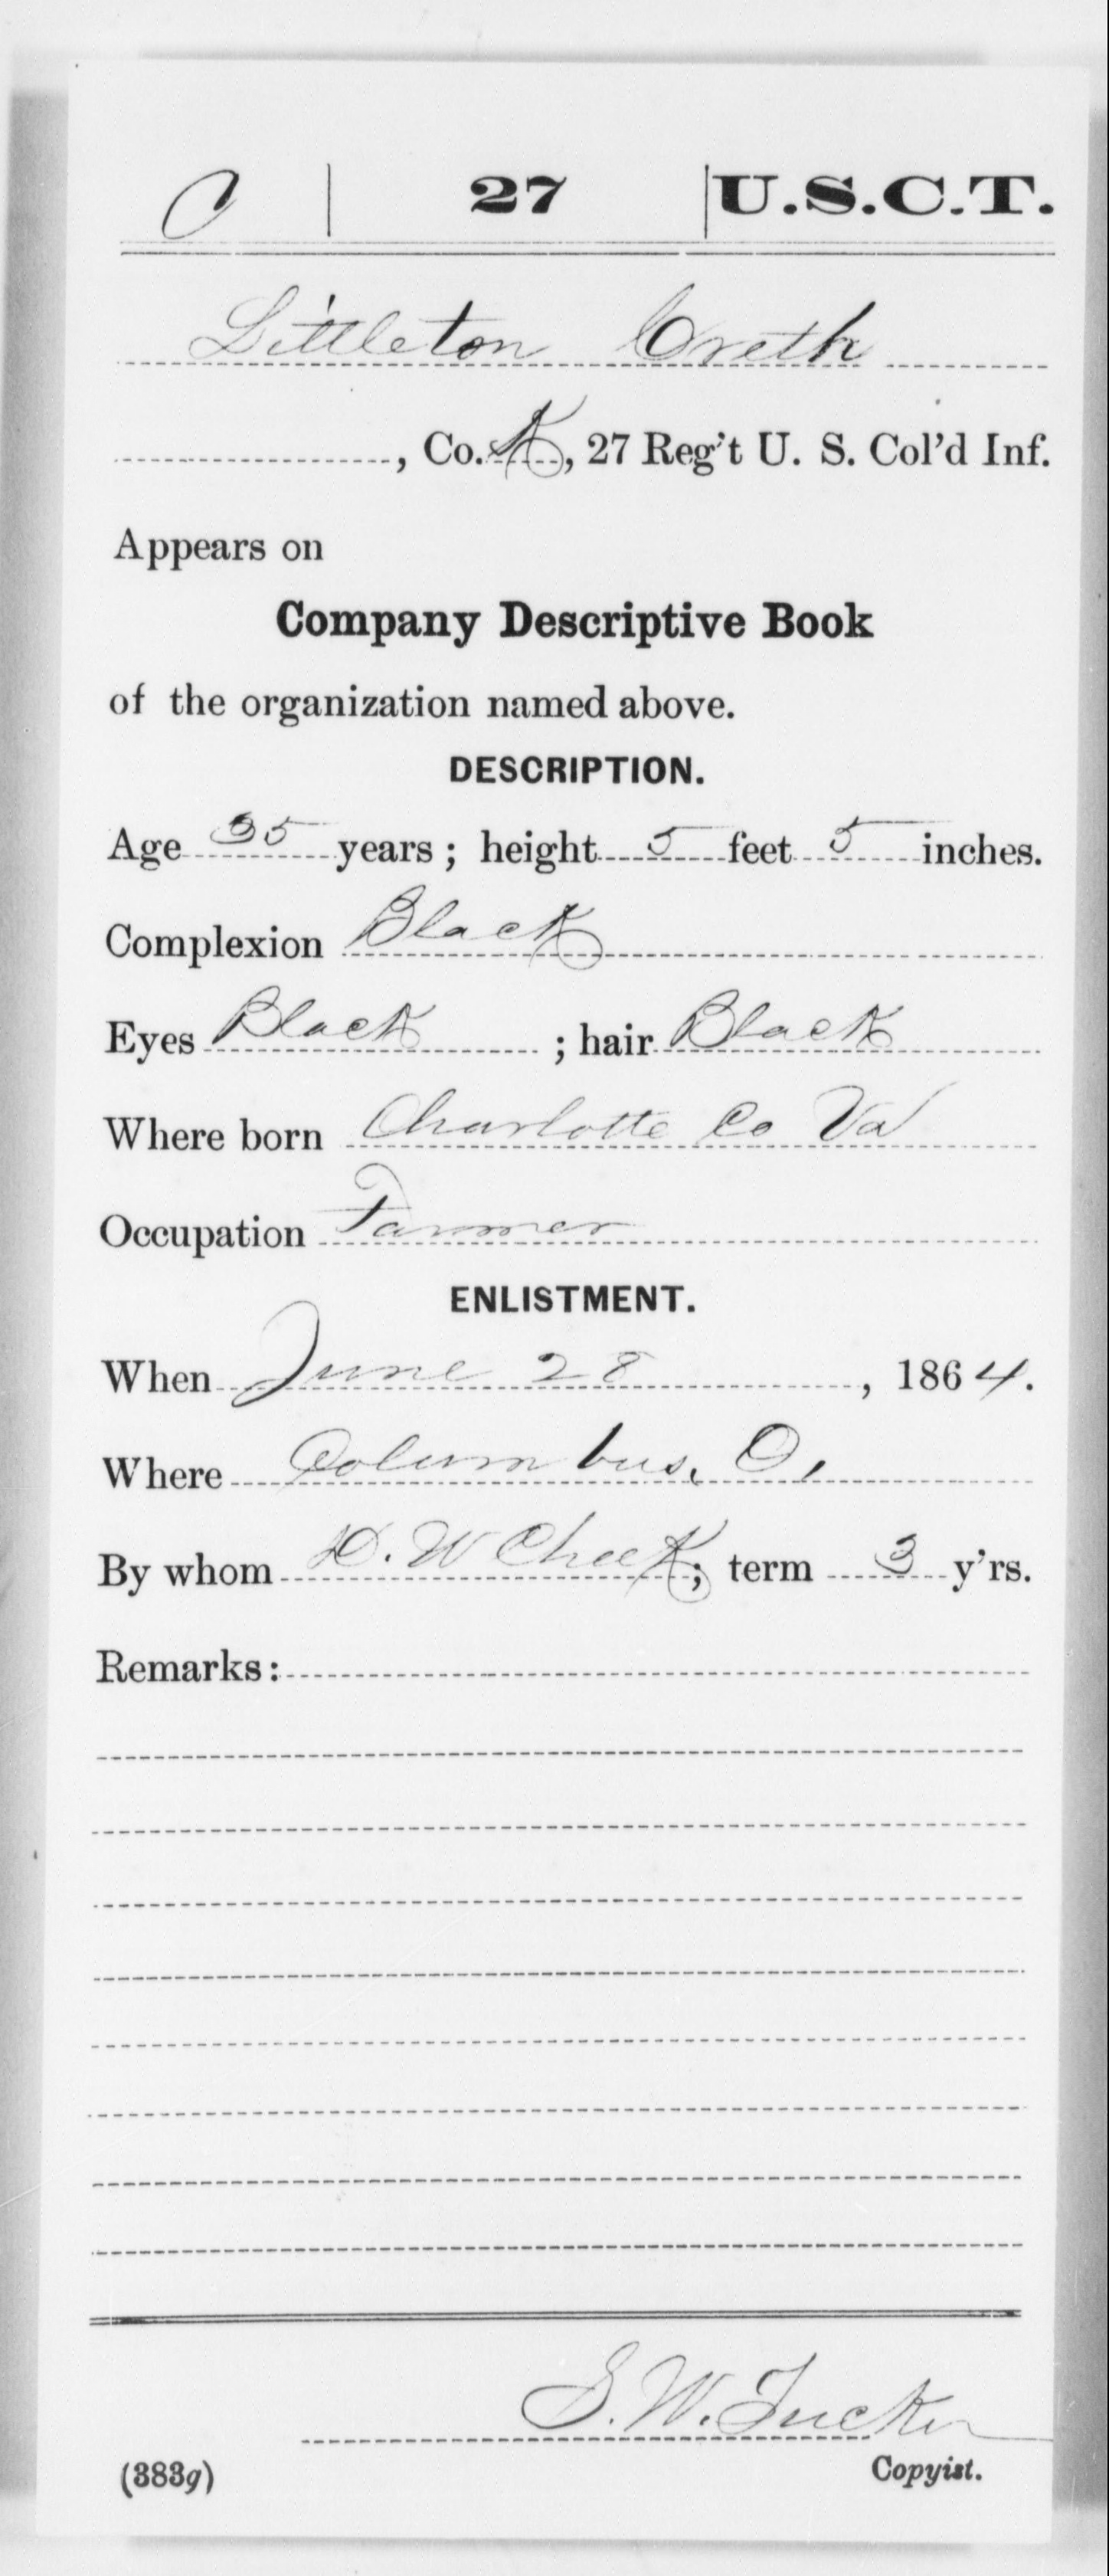 C 27 U.S.C.T.
Littleton Creth
, Co. K, 27 Reg't U. S. Col'd Inf.
Appears on
Company Descriptive Book
of the organization named above.
DESCRIPTION.
Age 35 years; height 5 feet 5 inches.
Complexion Black
Eyes Black ; hair Black
Where born Charlotte Co Va
Occupation Farmer
ENLISTMENT.
When June 28, 1864.
Where Columbus, O,
By whom D. W Cheek; term 3 y'rs.
Remarks:
S. W. Tucker
(383g) Copyist.